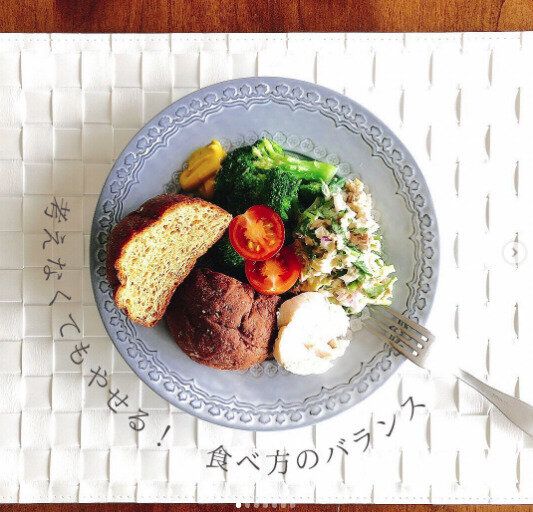 考えなくてもやせる！
食べ方のバランス